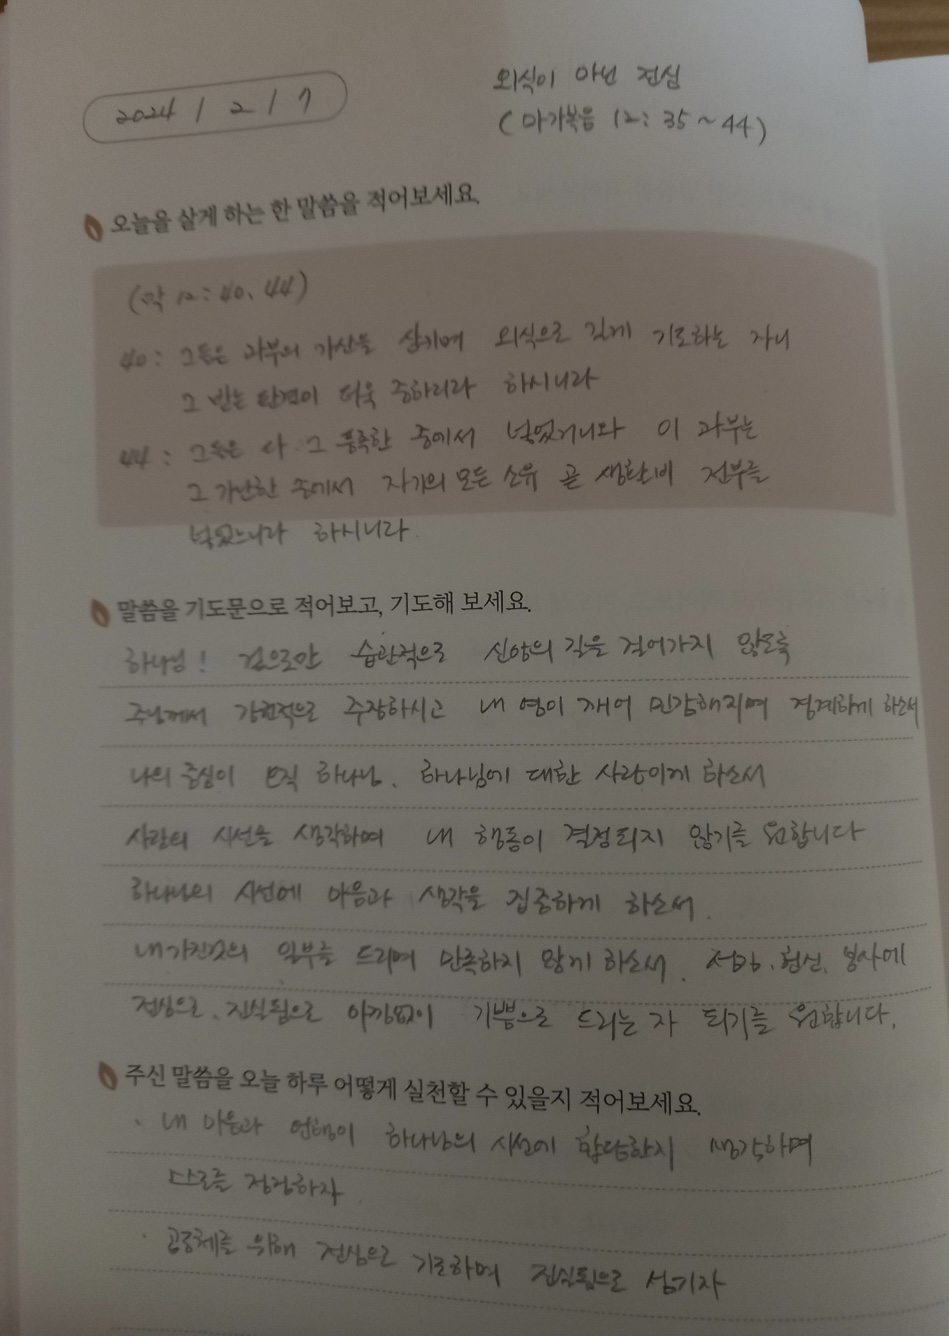 2024 / 2 / 7
외식이 아닌 진심
(마가복음 12: 35 ~ 44)
오늘을 살게 하는 한 말씀을 적어보세요.
(막 12: 40, 44)
40: 그들은 과부의 가산을 삼키며 외식으로 길게 기도하는 자니
그 받는 판결이 더욱 중하리라 하시니라
44: 그들은 다 그 풍족한 중에서 넣었거니와 이 과부는
그 가난한 중에서 자기의 모든 소유 곧 생활비 전부를
넣었느니라 하시니라
말씀을 기도문으로 적어보고, 기도해 보세요.
하나님! 겉으로만 습관적으로 신앙의 길을 걸어가지 않도록
주님께서 강권적으로 주장하시고 내 영이 깨어 민감해지며 경계하게 하소서
나의 중심이 오직 하나님, 하나님에 대한 사랑이게 하소서
사람의 시선을 생각하며 내 행동이 결정되지 않기를 원합니다
하나님의 시선에 마음과 생각을 집중하게 하소서.
내가진것의 일부를 드리며 만족하지 않게 하소서. 섬김, 헌신, 봉사에
진심으로, 진실됨으로 아낌없이 기쁨으로 드리는 자 되기를 원합니다.
주신 말씀을 오늘 하루 어떻게 실천할 수 있을지 적어보세요.
· 내 마음과 언행이 하나님의 시선에 합당한지 생각하며
스스로를 점검하자
· 공동체를 위해 진심으로 기도하며 진실됨으로 섬기자